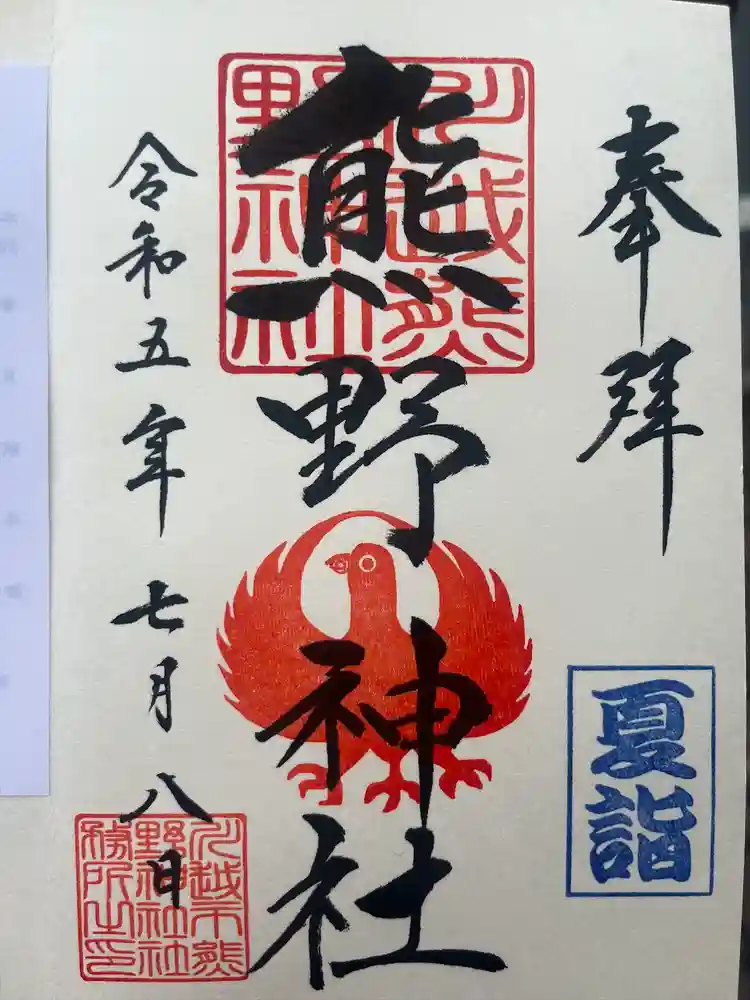 奉拝
夏詣
川越熊野神社
熊野神社
令和五年七月八日
川越市熊野神社社務所之印